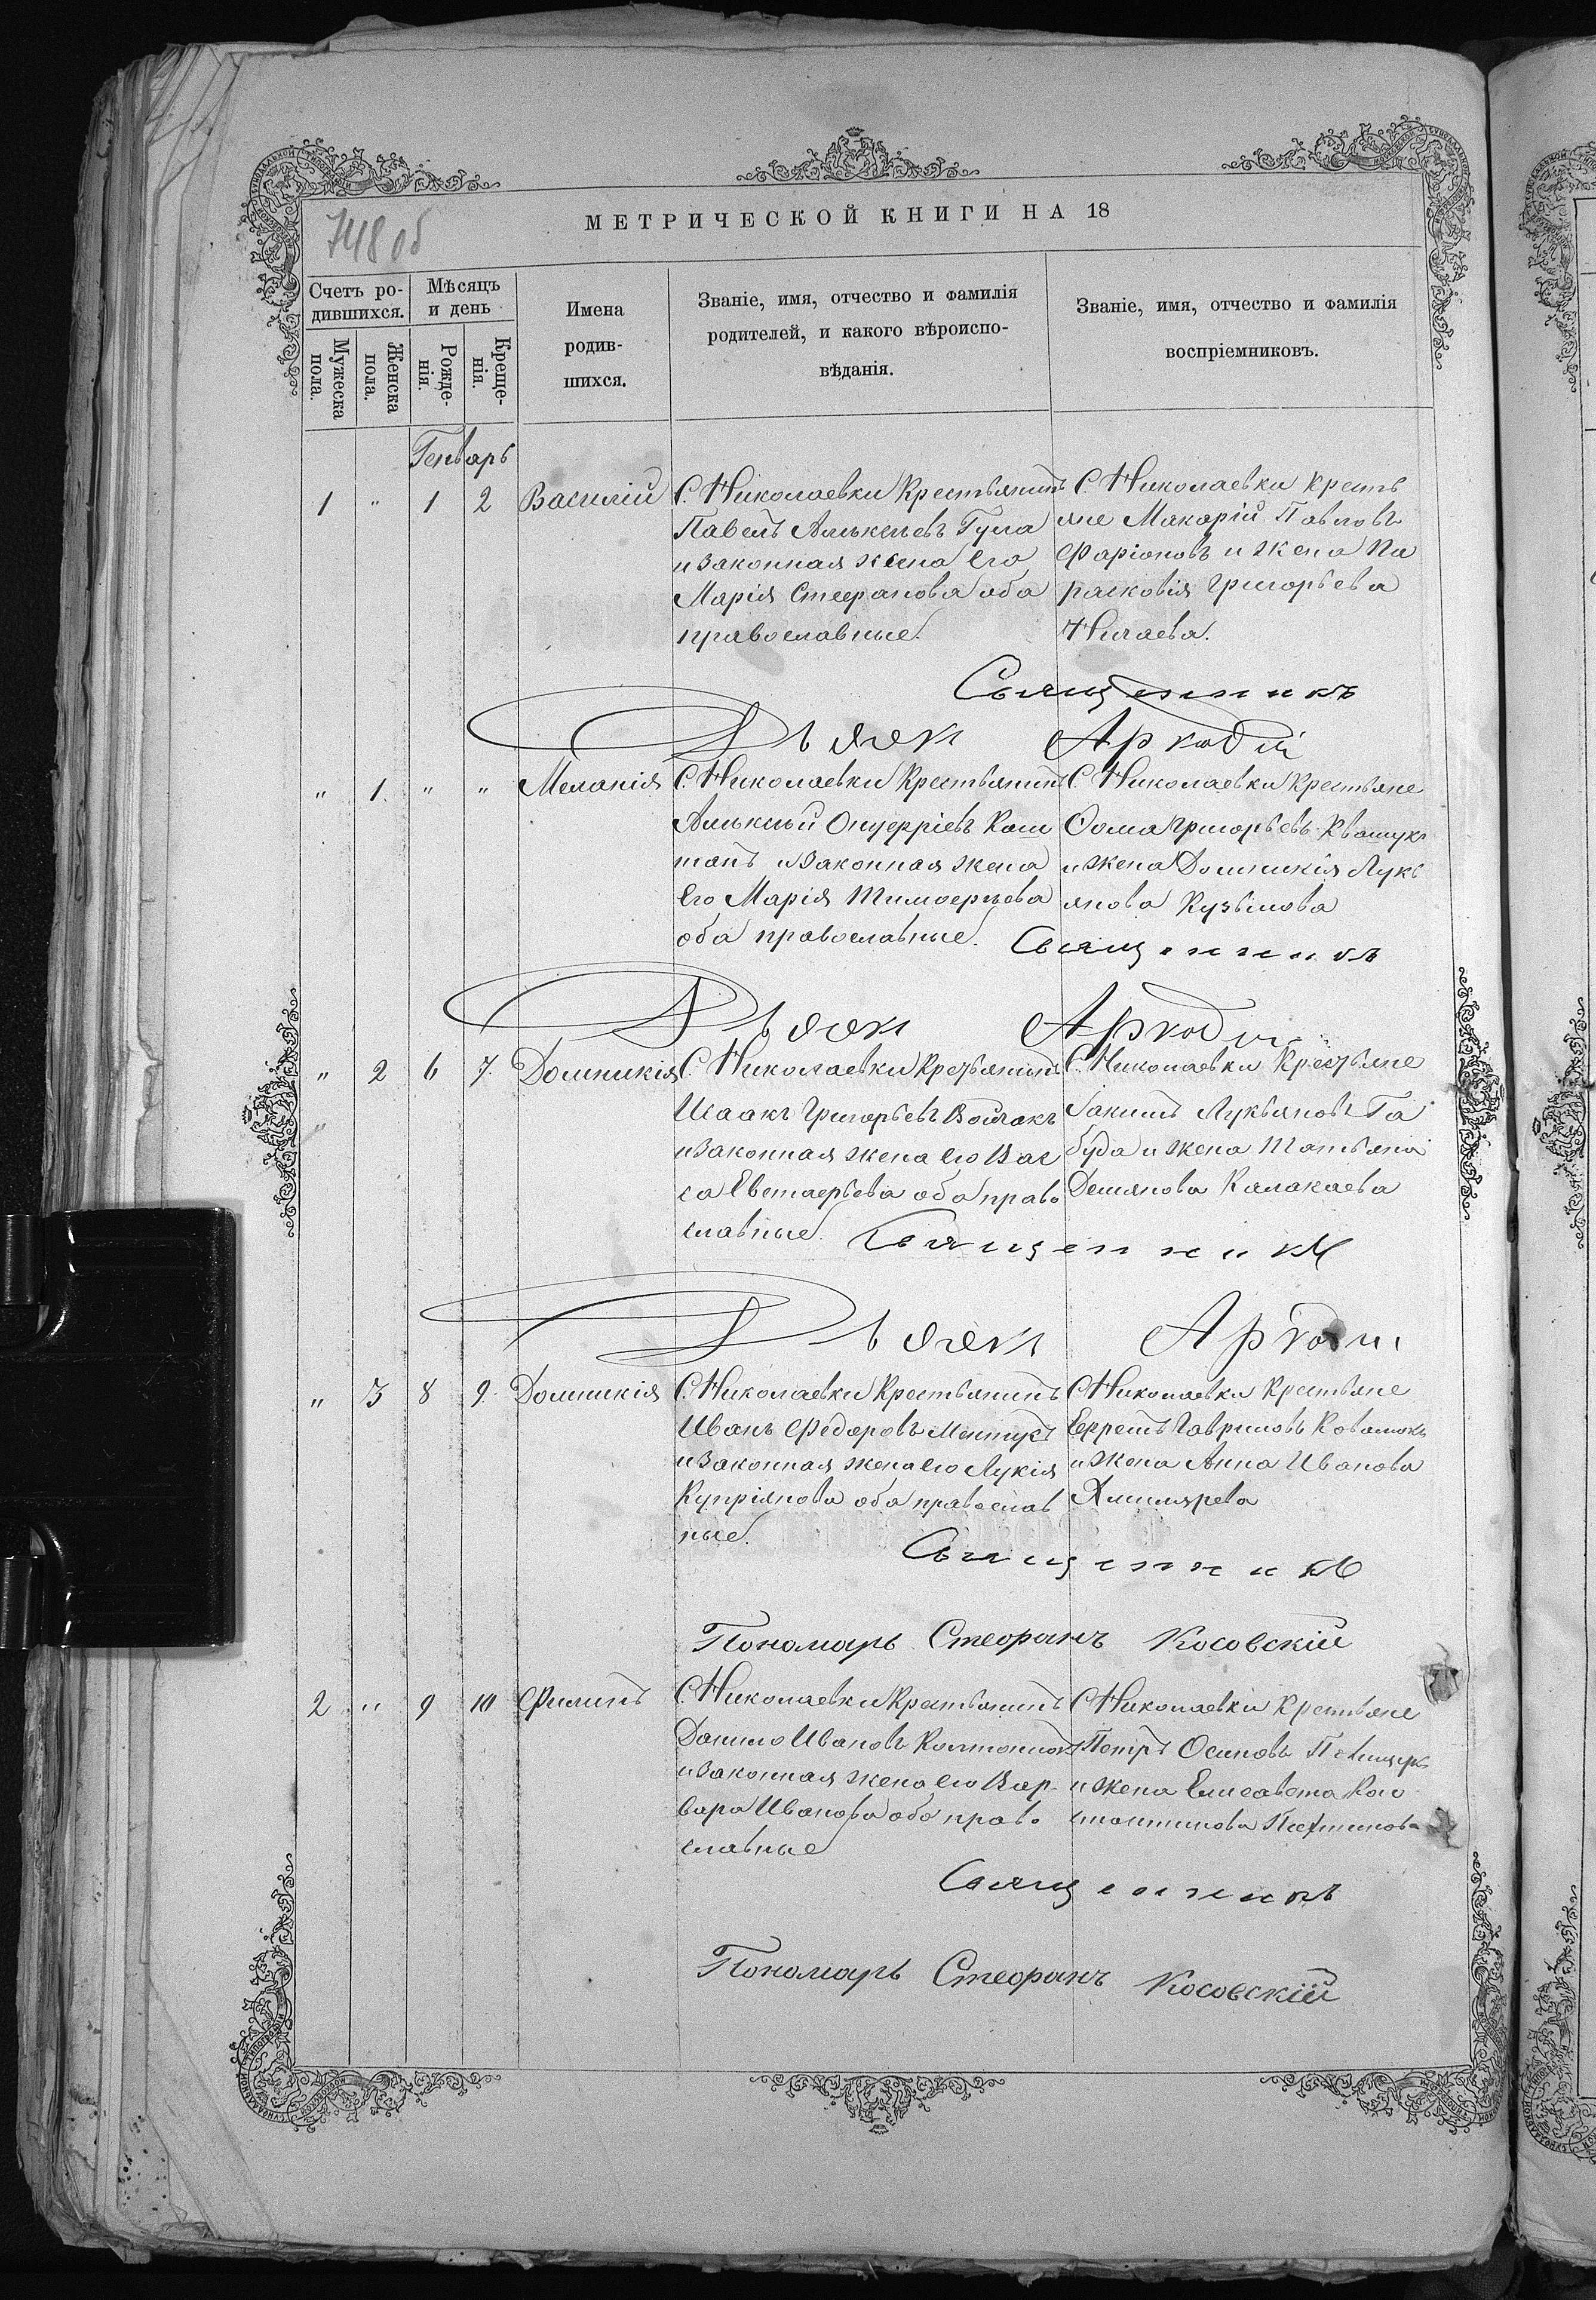 748 об
МЕТРИЧЕСКОЙ КНИГИ НА 18
Счетъ ро-
дившихся.
Мѣсяцъ
и день
Мужеска
пола.
Женска
пола.
Рожде-
нія.
Креще-
нія.
Имена
родив-
шихся.
Званіе, имя, отчество и фамилія
родителей, и какого вѣроиспо-
вѣданія.
Званіе, имя, отчество и фамилія
воспріемниковъ.
Генварь
1 " 1 2 Василій
С. Николаевки Крестьянинъ
Павелъ Алексѣевъ Гула
и законная жена его
Марія Стефанова оба
православные.
С. Николаевки кресть
яне Макарій Павловъ
Фаріоновъ и жена Па
расковія Григорьева
Ничаева.
Священникъ
Дьячок Аркадій
" 1. " " Меланія
С. Николаевки Крестьянинъ
Алексѣй Онуфріевъ Каш
танъ и законная жена
его Марія Тимофеева
оба православные.
С. Николаевки Крестьяне
Ѳома Григорьевъ
и жена Домникія Лукь
янова Кузьмова
Священникъ
Дьячок Аркадій
" 2 6 7. Домникія
С. Николаевки Крестьянинъ
Исаакъ Григорьевъ
и законная жена его Вас
са Евстафьева оба право
славные.
С. Николаевки Крестьяне
Іакимъ Лукьяновъ Га
буда и жена Татьяна
Демянова Калакаева
Священникъ
Дьячок Аркадій
" 3 8 9. Домникія
С. Николаевки Крестьянинъ
Иванъ Федоровъ
и законная жена его Лукія
Купріянова оба православ
ные.
С Николаевки Крестьяне
Ефремъ Гавриловъ
и жена Анна Иванова
Священникъ
Пономарь Стефанъ Косовскій
2 " 9 10 Филипъ
С. Николаевки Крестьянинъ
Данило Ивановъ
и законная жена его Вар
вара Иванова оба право
славные
С Николаевки Крестьяне
Петръ Осиповъ
и жена Елисавета Кон
стантинова
Священникъ
Пономарь Стефанъ Косовскій